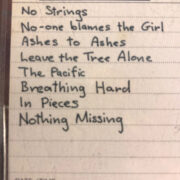 No Strings
No-one blames the Girl
Ashes to Ashes
Leave the Tree Alone
The Pacific
Breathing Hard
In Pieces
Nothing Missing